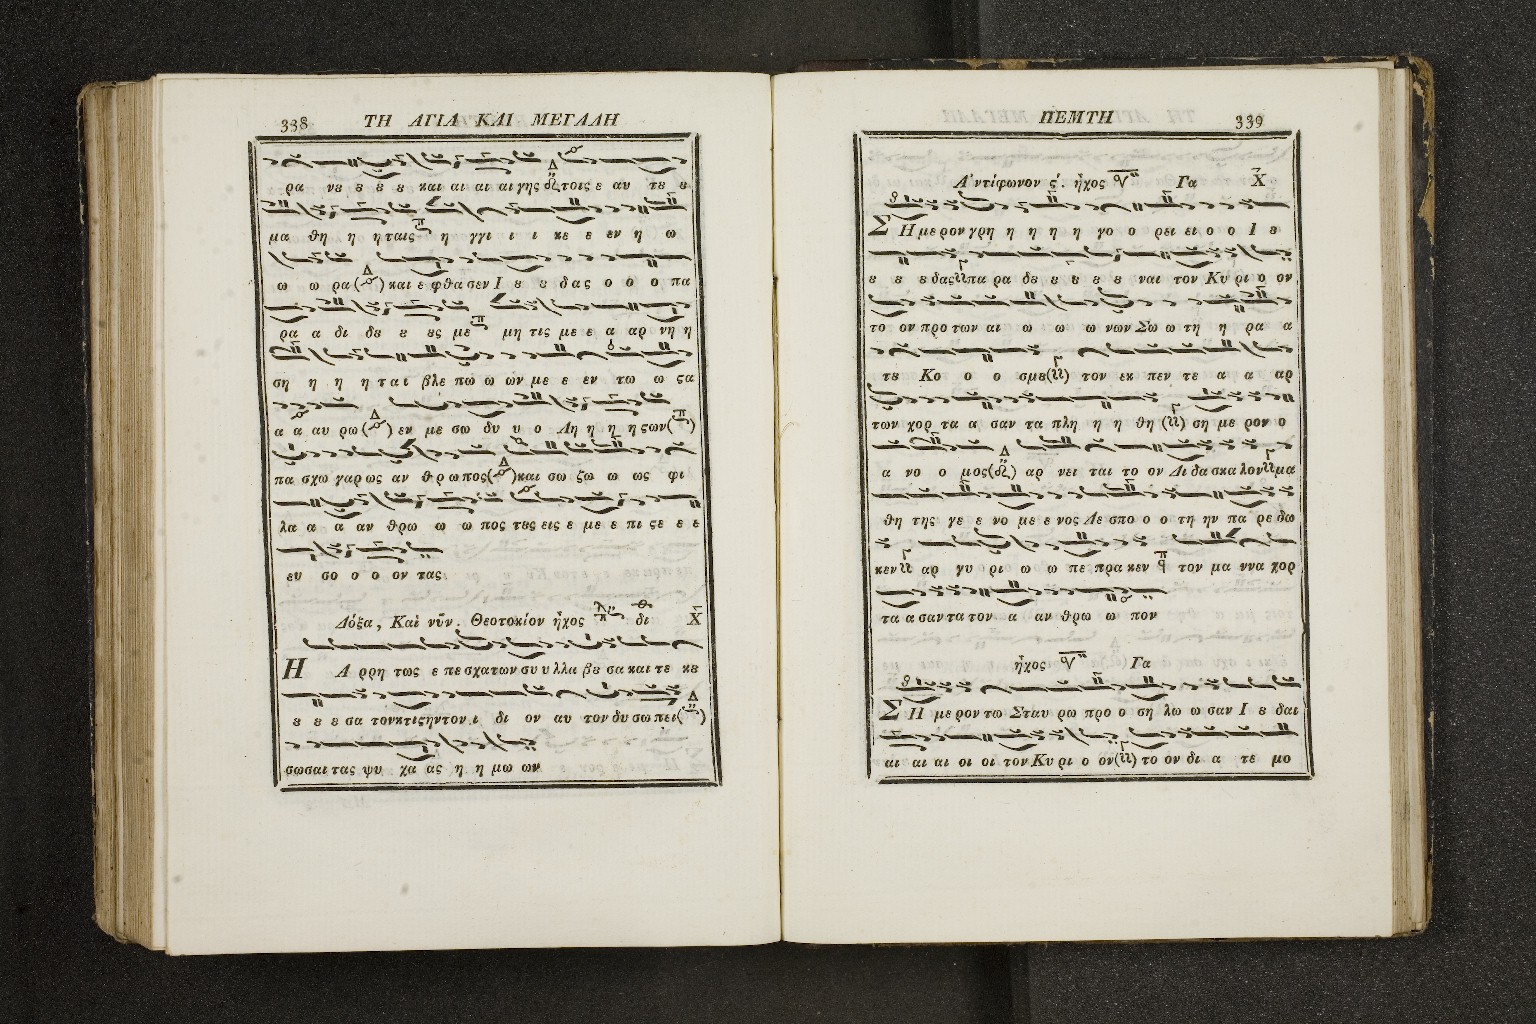 338 ΤΗ ΑΓΙΑ ΚΑΙ ΜΕΓΑΛΗ
ρα νȣ ȣ ȣ ȣ και αι αι αι αι γης τοις ε αυ τȣ ȣ
μα θη η η ταις η γγι ι ι κε ε εν η ω
ω ω ρα και ε φθα σεν Ι ȣ ȣ δας ο ο ο πα
ρα α δι δȣ ȣ ȣς με μη τις με ε α αρ νη η
ση η η η ται βλε πω ω ων με ε εν τω ω ϛα
α α αυ ρω εν με σω δυ υ ο Λη η η η ϛων
πα σχω γαρ ως αν θρωπος και σω ζω ω ως φι
λα α α αν θρω ω ω πος τȣς εις ε με ε πι ϛε ε ε
ευ σο ο ο ον τας
Δόξα, Καὶ νῦν. Θεοτοκίον ἦχος δι Χ
Η Α ρρη τως ε πε σχατων συ υ λλα βȣ σα και τε κȣ
ȣ ȣ ȣ σα τον κτιϛην τον ι δι ον αυ τον δυ σω πει
σωσαι τας ψυ χα ας η η μω ων
ΠΕΜΤΗ 339
Ἀντίφωνον ϛ΄. ἦχος Γα Χ
Σ Η με ρον γρη η η η η γο ο ρει ει ο ο Ι ȣ
ȣ ȣ ȣ δας πα ρα δȣ ȣ ȣ ȣ ȣ ναι τον Κυ ρι ο ον
το ον προ των αι ω ω ω νων Σω ω τη η ρα α
τȣ Κο ο ο σμȣ τον εκ πεν τε α α αρ
των χορ τα α σαν τα πλη η η θη ση με ρον ο
α νο ο μος αρ νει ται το ον Δι δα σκα λον μα
θη της γε ε νο με ε νος Δε σπο ο ο τη ην πα ρε δω
κεν αρ γυ ρι ω ω πε πρα κεν τον μα ννα χορ
τα α σαν τα τον α αν θρω ω πον
ἦχος Γα
Σ Η με ρον τω Σταυ ρω προ ο ση λω ω σαν Ι ȣ δαι
αι αι αι οι οι τον Κυ ρι ο ον το ον δι α τȣ μο